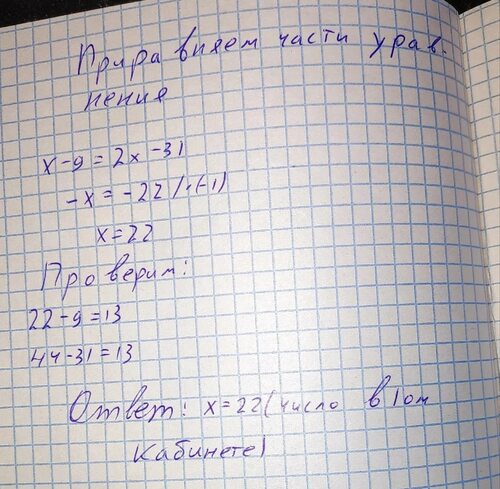 Прира вняем части урав-
нения
x-9=2x-31
-x=-22/·(-1)
x=22
Проверим:
22-9=13
44-31=13
Ответ: x=22(число в 1ом
кабинете)